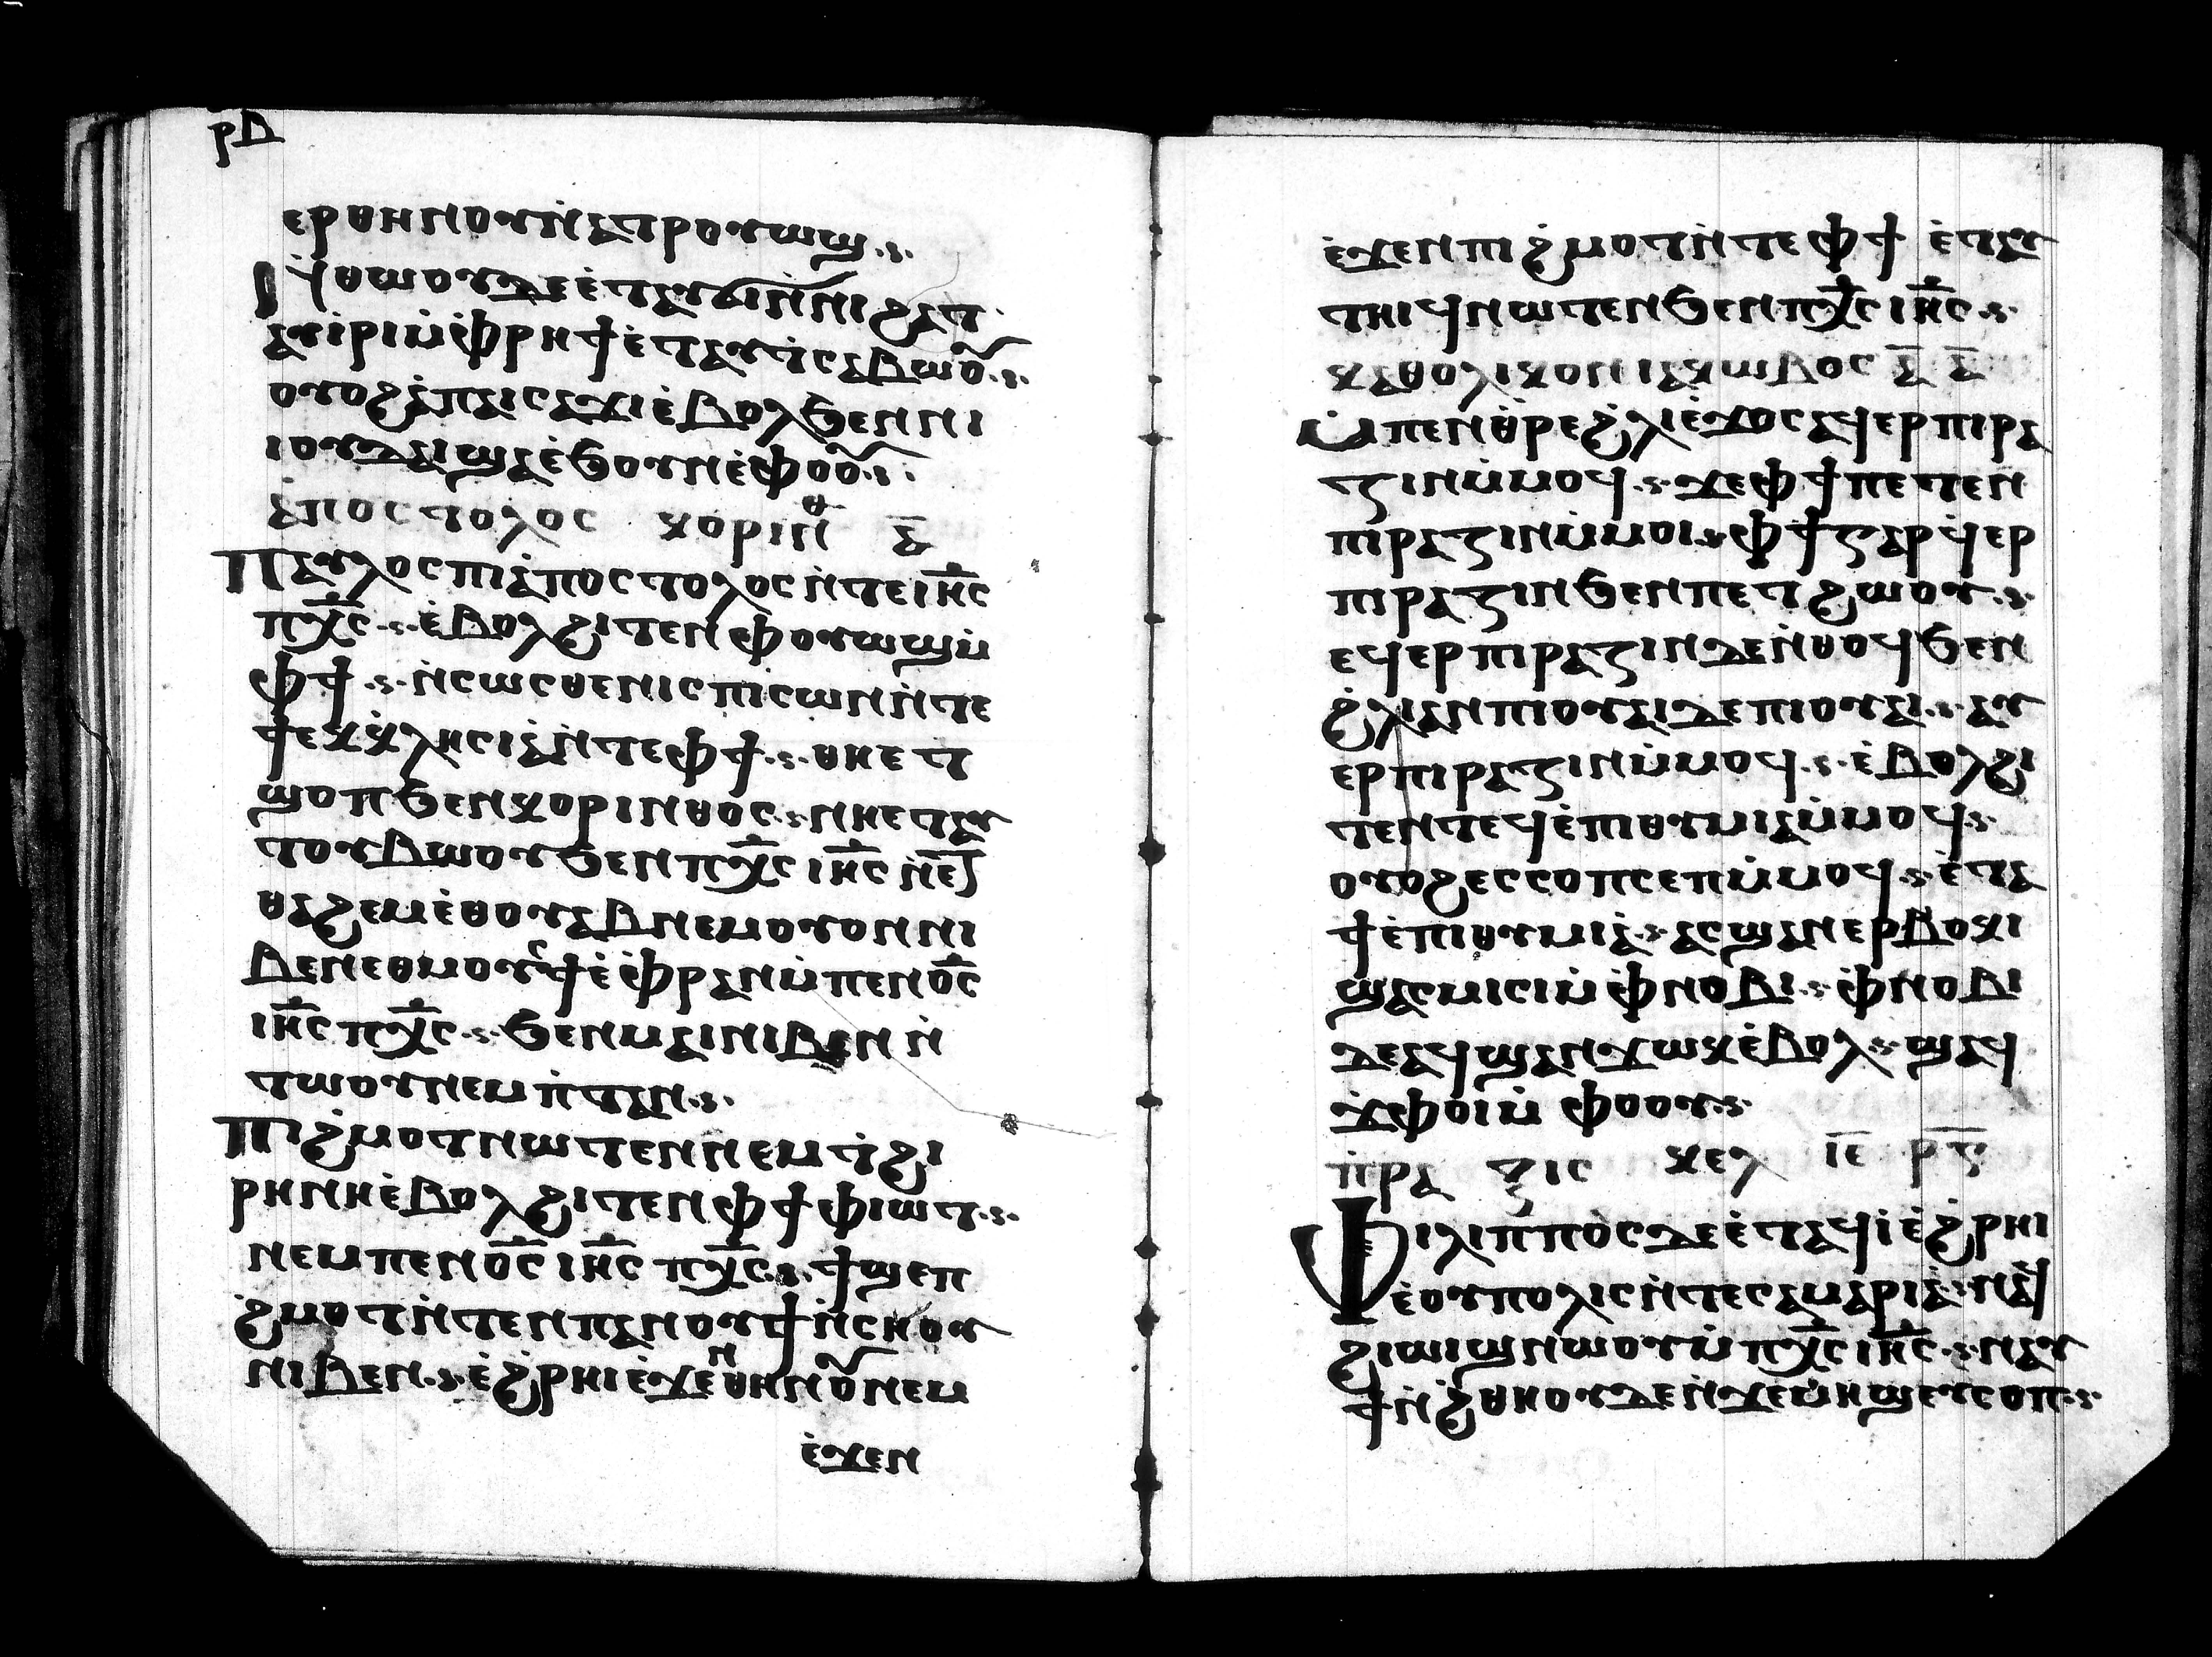 ⲣⲇ
ⲉⲣⲑⲏⲛⲟⲩⲛ̀ⲁⲧⲣⲟⲟⲩϣ
ⲛ̀ⲑⲱⲟⲩⲇⲉⲉ̀ⲧⲁⲩϭⲓⲛ̀ⲛⲓϩⲁⲧ
ⲁⲩⲓ̀ⲣⲓⲙ̀ⲫ̀ⲣⲏϯⲉ̀ⲧⲁⲩⲧ̀ⲥⲁⲃⲱⲟⲩ
ⲟⲩⲟϩⲁ̀ⲡⲁⲓⲥⲁϫⲓⲉ̀ⲃⲟⲗϧⲉⲛⲛⲓ
ⲓⲟⲩⲇⲁⲓϣⲁⲉ̀ϧⲟⲩⲛⲉ̀ⲫⲟⲟⲩ
ⲁ̀ⲡⲟⲥⲧⲟⲗⲟⲥ ⲕⲟⲣⲓⲛⲑ ⲁ̅
ⲡⲁⲩⲗⲟⲥⲡⲓⲁ̀ⲡⲟⲥⲧⲟⲗⲟⲥⲛ̀ⲧⲉⲓⲏ̅ⲥ
ⲡⲭ̅ⲥ ⲉ̀ⲃⲟⲗϩⲓⲧⲉⲛⲫⲟⲩⲱϣⲙ̀
ⲫϯ ⲛ̀ⲥⲱⲥⲑⲉⲛⲓⲥⲡⲓⲥⲱⲛⲛ̀ⲧⲉ
ϯⲉⲕⲕ̀ⲗⲏⲥⲓⲁ̀ⲛ̀ⲧⲉⲫϯ ⲑⲏⲉⲧ
ϣⲟⲡϧⲉⲛⲕⲟⲣⲓⲛⲑⲟⲥ ⲛⲏⲉⲧⲁⲩ
ⲧⲟⲩⲃⲱⲟⲩϧⲉⲛⲡⲭ̅ⲥⲓⲏ̅ⲥ
ⲑⲁϩⲉⲙⲉ̀ⲑⲟⲩⲁⲃⲛⲉⲙⲟⲩⲟⲛⲛⲓ
ⲃⲉⲛⲉⲑⲙⲟⲩϯⲉ̀ⲫ̀ⲣⲁⲛⲙ̀ⲡⲉⲛⲟ̅ⲥ
ⲓⲏ̅ⲥⲡⲭ̅ⲥ ϧⲉⲛⲙⲁⲓⲛⲓⲃⲉⲛⲛ̀
ⲧⲱⲟⲩⲛⲉⲙⲛ̀ⲧⲁⲛ
ⲡⲓϩ̀ⲙⲟⲧⲛⲱⲧⲉⲛⲛⲉⲙⲧ̀ϩⲓ
ⲣⲏⲛⲏⲉ̀ⲃⲟⲗϩⲓⲧⲉⲛⲫϯⲫⲓⲱⲧ
ⲛⲉⲙⲡⲉⲛⲟ̅ⲥⲓⲏ̅ⲥⲡⲭ̅ⲥ ϯϣⲉⲡ
ϩ̀ⲙⲟⲧⲛ̀ⲧⲉⲛⲡⲁⲛⲟⲩϯⲛ̀ⲥⲏⲟⲩ
ⲛⲓⲃⲉⲛ ⲉ̀ϩ̀ⲣⲏⲓⲉ̀ϫⲉⲛⲑⲏⲛⲟⲩⲛⲉⲙ
ⲉ̀ϫⲉⲛ
ⲉ̀ϫⲉⲛⲡⲓϩ̀ⲙⲟⲧⲛ̀ⲧⲉⲫϯ ⲉ̀ⲧⲁⲩ
ⲧⲏⲓϥⲛⲱⲧⲉⲛϧⲉⲛⲡⲭ̅ⲥⲓⲏ̅ⲥ
ⲕⲁⲑⲟⲗⲓⲕⲟⲛⲓⲁⲕⲱⲃⲟⲥ ⲁ̅ ⲁ̅
ⲙ̀ⲡⲉⲛⲑ̀ⲣⲉϩ̀ⲗⲓⲉ̀ϫⲟⲥⲁϥⲉⲣⲡⲓⲣⲁ
ⲍⲓⲛⲙ̀ⲙⲟϥ ϫⲉⲫϯⲡⲉⲧⲉⲛ
ⲡⲓⲣⲁⲍⲓⲛⲙ̀ⲙⲟⲓ ⲫϯⲅⲁⲣϥ̀ⲉⲣ
ⲡⲓⲣⲁⲍⲓⲛϧⲉⲛⲡⲉⲧϩⲱⲟⲩ
ⲉϥⲉⲣⲡⲓⲣⲁⲍⲓⲛⲇⲉⲛ̀ⲑⲟϥϧⲉⲛ
ϩ̀ⲗⲓⲁⲛⲡⲓⲟⲩⲁⲓⲇⲉⲡⲓⲟⲩⲁⲓ ⲁⲩ
ⲉⲣⲡⲓⲣⲁⲍⲓⲛⲙ̀ⲙⲟϥ ⲉ̀ⲃⲟⲗϩⲓ
ⲧⲉⲛⲧⲉϥⲉ̀ⲡⲓⲑⲩⲙⲓⲁⲙ̀ⲙⲟϥ
ⲟⲩⲟϩⲉⲥⲥⲟⲡⲥⲉⲡⲙ̀ⲙⲟϥ ⲉ̀ⲧⲁ
ϯⲉ̀ⲡⲓⲑⲩⲙⲓⲁ̀ ⲁⲥϣⲁⲛⲉⲣⲃⲟⲕⲓ
ϣⲁⲥⲙⲓⲥⲓⲙ̀ⲫ̀ⲛⲟⲃⲓ ⲫ̀ⲛⲟⲃⲓ
ⲇⲉⲁϥϣⲁⲛϫⲱⲕⲉ̀ⲃⲟⲗ ϣⲁϥ
ϫⲫⲟⲓⲙ̀ ⲫⲙⲟⲩ
ⲡ̀ⲣⲁⲝⲓⲥ ⲕⲉⲗ ⲓ̅ⲉ̅
ⲫⲓⲗⲓⲡⲡⲟⲥⲇⲉⲉ̀ⲧⲁϥⲓ̀ⲉ̀ϩ̀ⲣⲏⲓ
ⲉ̀ⲟⲩⲡⲟⲗⲓⲥⲛ̀ⲧⲉⲥⲁⲙⲁⲣⲓⲁ̀ ⲛⲁϥ
ϩⲓⲱⲓϣⲛⲱⲟⲩⲙ̀ⲡⲭ̅ⲥⲓⲏ̅ⲥ ⲛⲁⲩ
ϯⲛ̀ϩ̀ⲑⲏⲟⲩⲇⲉⲛ̀ϫⲉⲙ̀ⲏϣⲉⲩⲥⲟⲡ